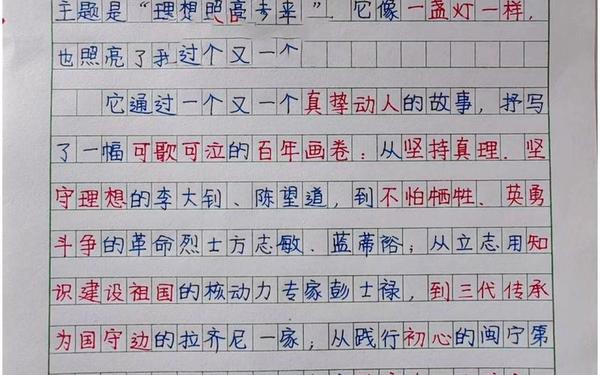 主题是“理想照亮未来”．它像一盏灯一样，
也照亮了我过个又一个
它通过一个又一个真挚动人的故事，抒写
了一幅可歌可泣的百年画卷：从坚持真理．坚
守理想的李大钊、陈望道，到不怕牺牲、英勇
斗争的革命烈士方志敏、蓝蒂裕；从立志用知
识建设祖国的核动力专家彭士禄，到三代传承
为国守边的拉齐尼一家；从践行初心的闽宁第